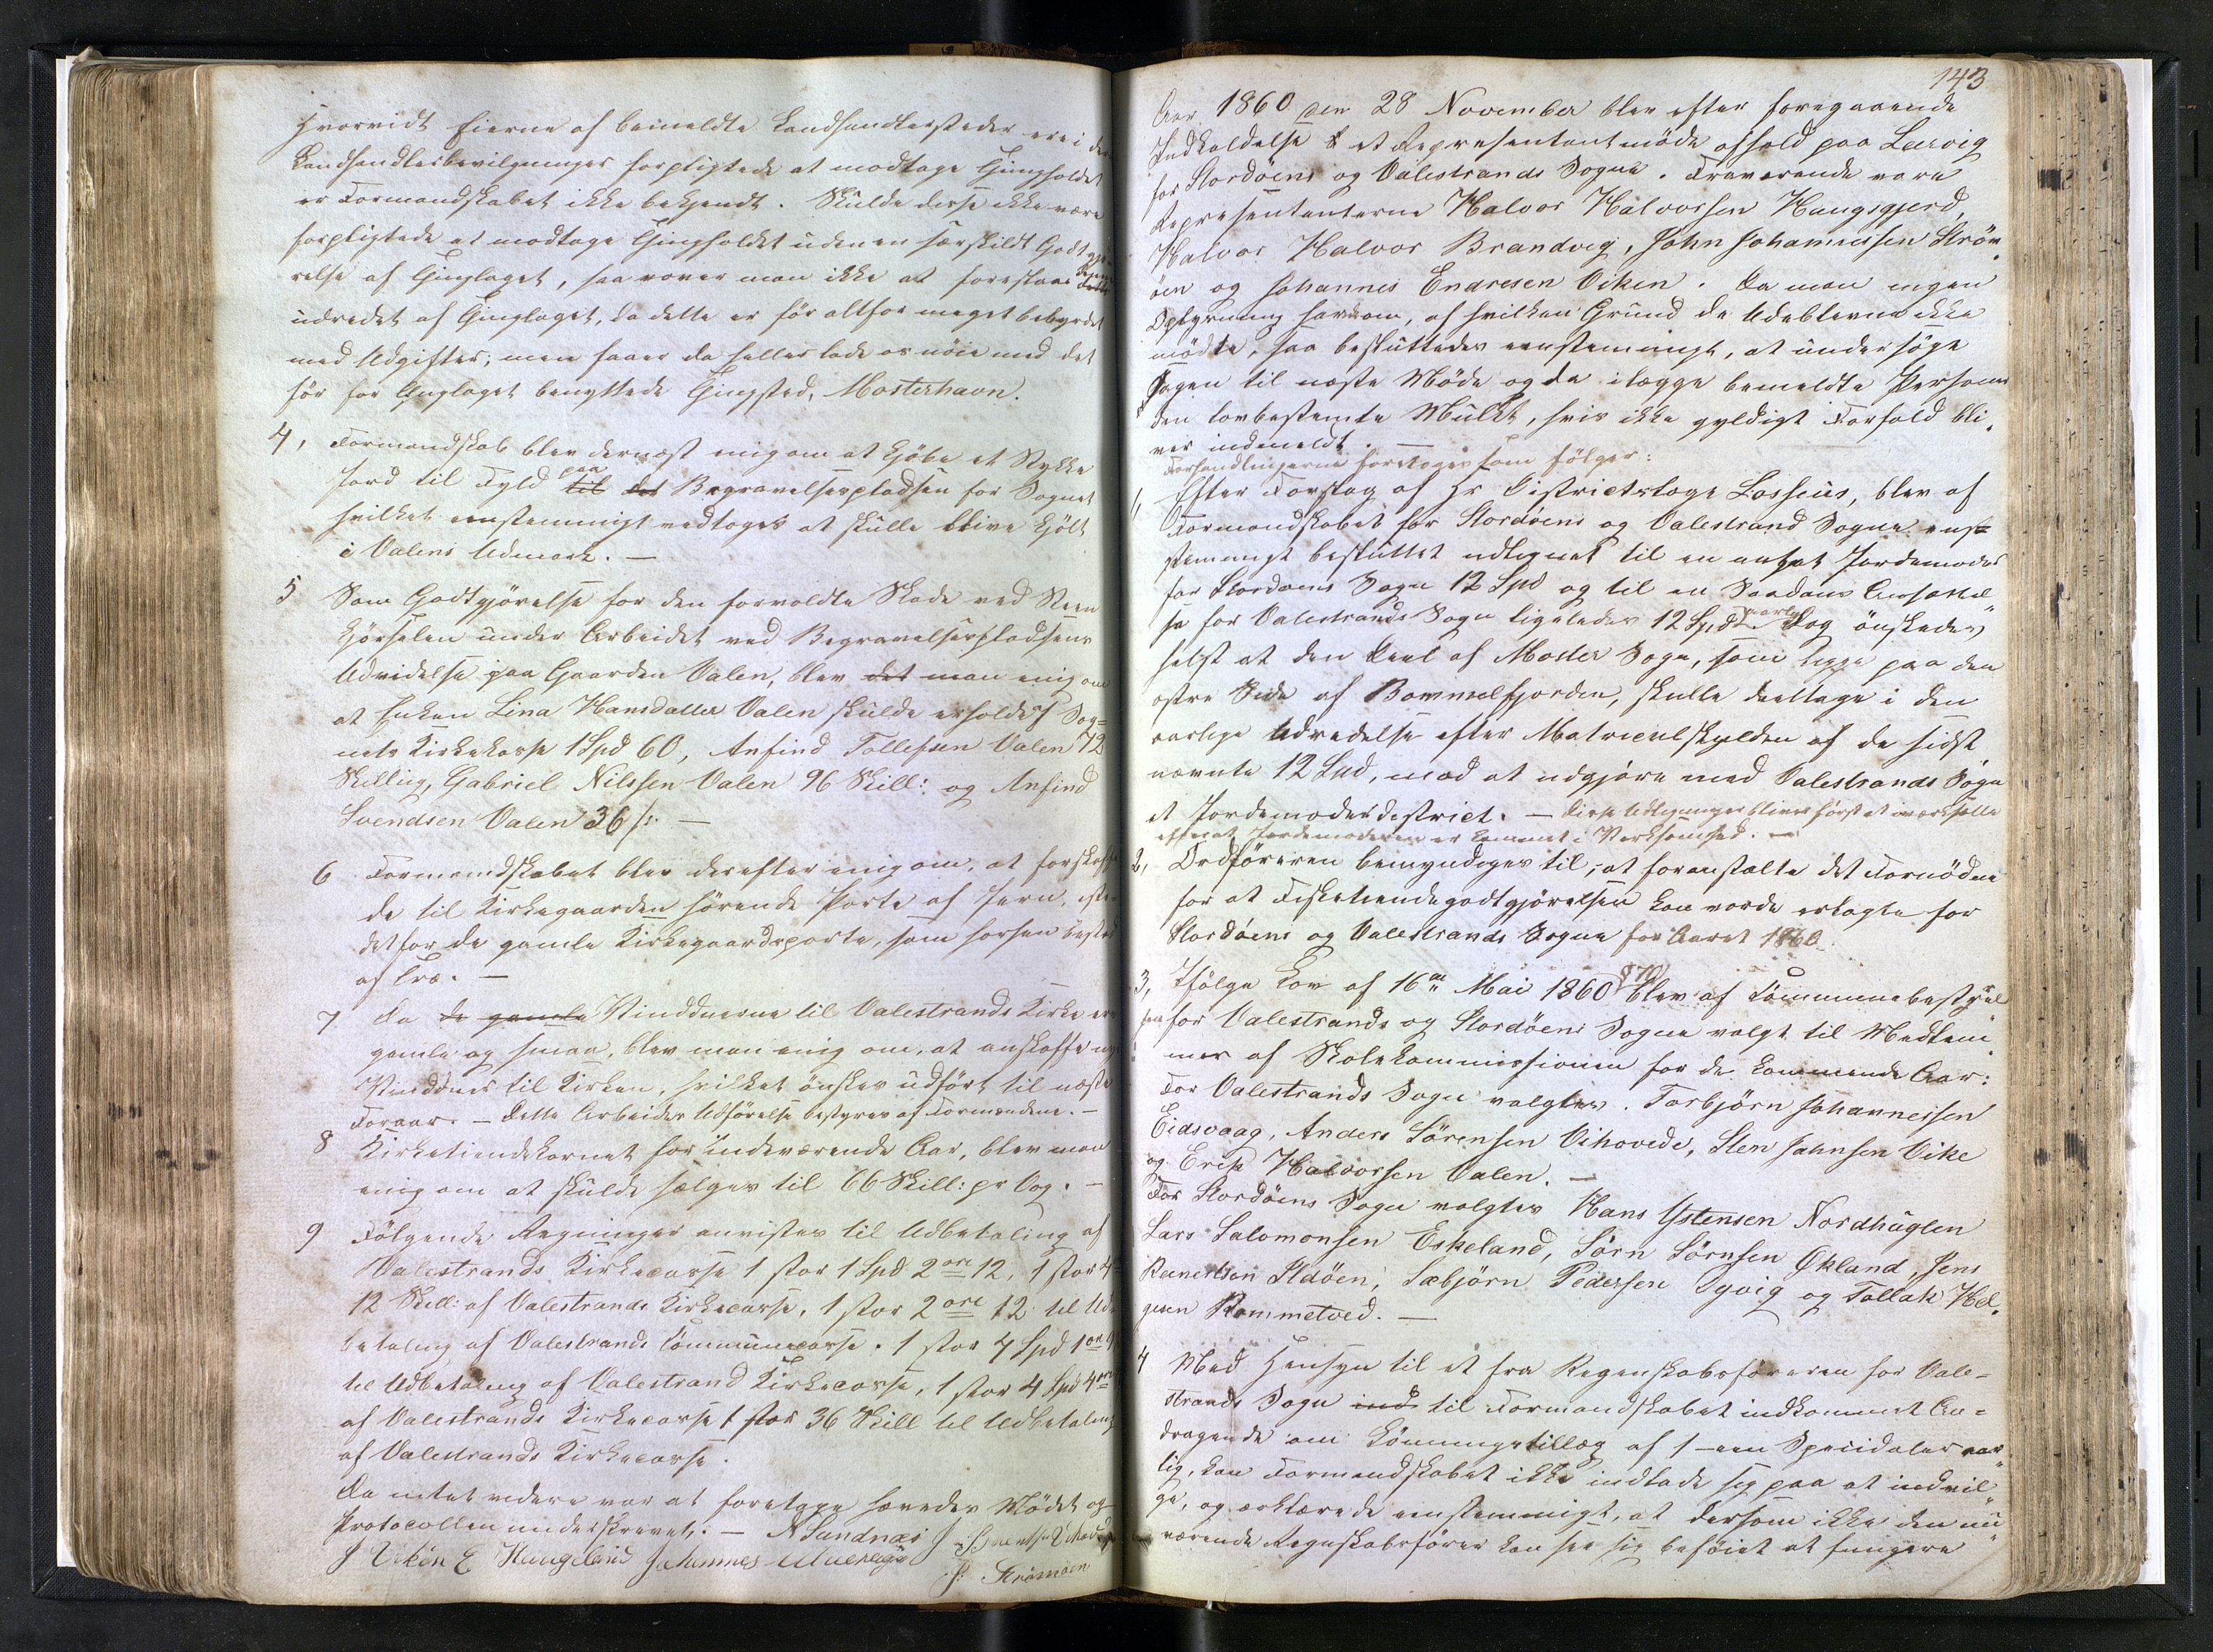 Hvorvidt Eierne af bemeldte Landhandlersteder ere i de
Landhandlerbevilgninger forpligtede at modtage Thingholdet
er Formandskabet ikke bekjendt. Skulde disse ikke være
forpligtede at modtage Thingholdet uden en særskildt Godtgjö-
relse af Thinglaget, saa vover man ikke at foreslaae
udredet af Thinglaget, da dette er før altfor meget bebyrdet
med Udgifter; men faaer da heller lade os nöie med det
før for Thinglaget benyttede Thingsted, Mosterhavn.
4, Formandskab blev dernæst enig om at kjöbe et Stykke
Jord til Fyld til det paa Begravelsespladsen for Sognet
hvilket eenstemmigt vedtoges at skulle blive kjöbt
i Valens Udmark. —
5 Som Godtgjörelse for den forvoldte Skade ved Steen
kjörselen under Arbeidet ved Begravelsespladsens
Udvidelse paa Gaarden Valen, blev det man enig om
at Enken Lina Hansdatter Valen skulde erholde af Sog=
nets Kirkekasse 1 Spd 60, Anfind Tollefsen Valen 72
Skilling, Gabriel Nilssen Valen 96 Skill: og Anfind
Svendsen Valen 36 s: —
6 Formandskabet blev derefter enig om, at forskaffe
de til Kirkegaarden hörende Porte af Jern, iste-
det for de gamle Kirkegaardsporte, som forhen bestod
af Træ. —
7 Da de gamle Vindduerne til Valestrands Kirke ere
gamle og smaa, blev man enig om, at anskaffe nye
Vindduer til Kirken, hvilket önskes udfört til næste
Foraar. — Dette Arbeides Udförelse bestyres af Formændene. —
8 Kirketiendekornet for indeværende Aar, blev man
enig om at skulde sælges til 66 Skill: pr Vog. —
9 Fölgende Regninger anvistes til Udbetaling af
Valestrands Kirkecasse 1 stor 1 Spd 2 ort 12, 1 stor 4
12 Skill: af Valestrands Kirkecasse, 1 stor 2 ort 12 til Ud
betaling af Valestrands Communecasse. 1 stor 4 Spd 1 ort 9
til Udbetaling af Valestrand Kirkecasse, 1 stor 4 Spd 4 ort
af Valestrands Kirkecasse 1 stor 36 Skill til Udbetaling
af Valestrands Kirkecasse.
Da intet videre var at foretage hævedes Mödet og
Protocollen underskrevet. — N Sundnæs
J Viken E Haugeland Johannes
J: Strömöen
143
Aar 1860 den 28 November blev efter foregaaende
Indkaldelse et Repræsentantmöde afhold paa Lervig
for Stordöens og Valestrands Sogne. Fraværende vare
Repræsentanterne Halvor Halvorsen Haugsgjerd,
Halvor Halvor Brandvig, John Johannessen Ström
öen og Johannes Endresen Viken. Da man ingen
Oplysning har om, af hvilken Grund de Udeblevne ikke
mödte, saa besluttedes eenstemmigt, at undersöge
Sagen til næste Möde og da ilægge bemeldte Personer
den lovbestemte Mulkt, hvis ikke gyldigt Forfald bli
ver indmeldt. —
Forhandlingerne foretoges som fölger:
1, Efter Forslag af Hr Districtslæge Lossius, blev af
Formandskabet for Stordöens og Valestrand Sogne een=
stemmigt besluttet udlignet til en antat Jordemoder
for Stordöens Sogn 12 Spd og til en Saadans Ansættel
se for Valestrands Sogn ligeledes 12 Spd aarlig. Dog önskedes
helst at den Deel af Moster Sogn, som ligge paa den
östre Side af Bommelfjorden, skulle deeltage i den
aarlige Udredelse efter Matriculskylden af de sidst
nævnte 12 Spd, mod at udgjöre med Valestrands Sogn
et Jordemoderdistrict. — Disse Udligninger bliver först at iværksætte
efterat Jordemoderen er kommet i Virksomhed. —
2, Ordföreren bemyndiges til, at foranstalte det Fornödne
for at Fisketiendegodtgjörelsen kan vorde erlagte for
Stordöens og Valestrands Sogne for Aaret 1860.
3, Ifölge Lov af 16de Mai 1860 § 70 blev af Communebestyrel
sen for Valestrands og Stordöens Sogne valgt til Medlem
mer af Skolekommissionen for de kommende Aar:
For Valestrands Sogn valgtes. Torbjörn Johannessen
Eidsvaag, Anders Sörensen Vihovede, Sten Johnsen Vike
og Erik Halvorsen Valen. —
For Stordöens Sogn valgtes Hans Ystensen Nordhuglen
Lars Salomonsen Eskeland, Sörn Sörnsen Økland, Jens
Reinertson Ildöen, Sæbjörn PedersenYgvig og Tollak Hel
gesen Rommetved. —
4 Med Hensyn til et fra Regnskabsföreren for Vale-
strands Sogn ind til Formandskabet indkommet An=
dragende om Lönningstillæg af 1 – een Speciedaler aar
lig, kan Formandskabet ikke indlade sig paa at indvil
ge, og erklærede eenstemmigt, at dersom ikke den nu
værende Regnskabsförer kan see sig beföiet at fungere